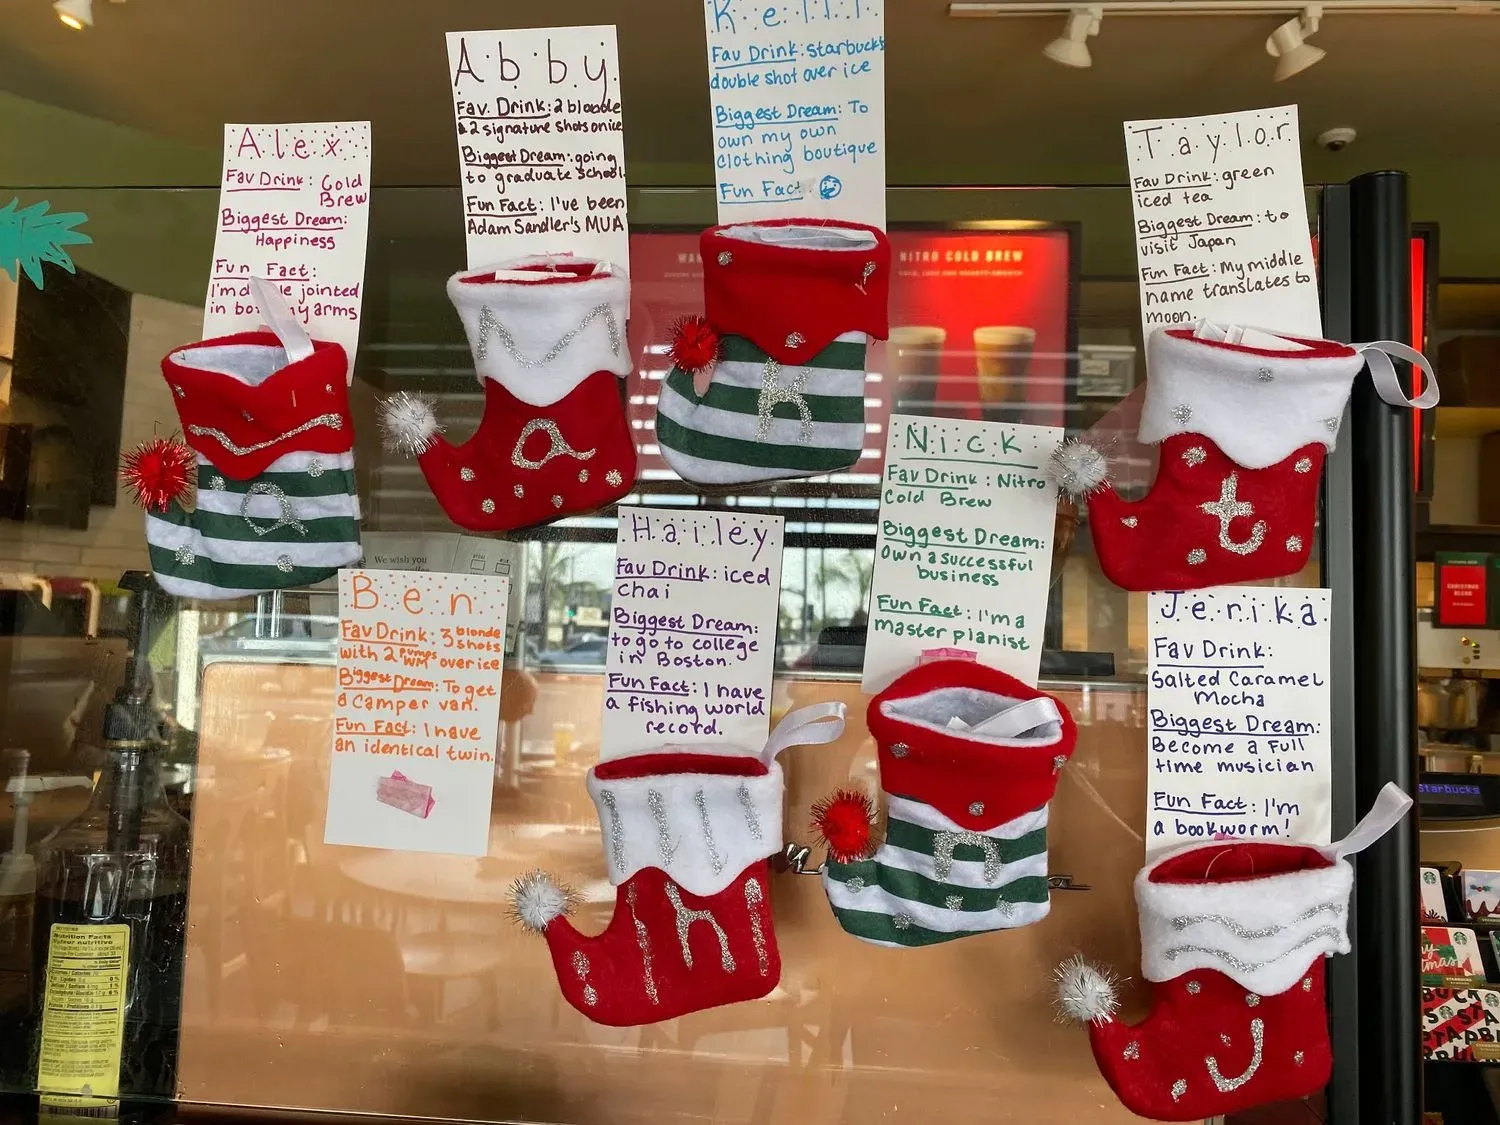 Alex
Fav Drink: Cold
Brew
Biggest Dream:
Happiness
Fun Fact:
I'm jointed
in my arms
Abby
Fav. Drink: 2 blonde
& 2 signature shots on ice
Biggest Dream: going
to graduate school.
Fun Fact: I've been
Adam Sandler's MUA
Kelli
Fav Drink: starbucks
double shot over ice
Biggest Dream: To
own my own
clothing boutique
Fun Fact
Taylor
Fav Drink: green
iced tea
Biggest Dream: to
visit Japan
Fun Fact: My middle
name translates to
moon.
Ben
Fav Drink: 3 blonde
shots
with 2 pumps WM over ice
Biggest Dream: To get
a camper van.
Fun Fact: I have
an identical twin.
Hailey
Fav Drink: iced
chai
Biggest Dream:
to go to college
in Boston.
Fun Fact: I have
a fishing world
record.
Nick
Fav Drink: Nitro
Cold Brew
Biggest Dream:
Own a successful
business
Fun Fact: I'm a
master pianist
Jerika
Fav Drink:
Salted Caramel
Mocha
Biggest Dream:
Become a full
time musician
Fun Fact: I'm
a bookworm!
a
a
k
t
h
n
J
NITRO COLD BREW
We wish you
CHRISTMAS
BLEND
Starbucks
Nutrition Facts
Valeur nutritive